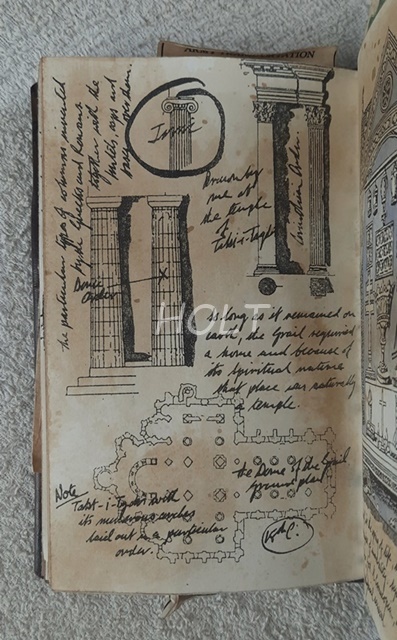 The particular types of columns invented
by the Greeks and Romans
together with the
and
Ionic
Drawn by
me at
the temple
of
Takt-i-Taqdis
Corinthian Order.
Doric
order
HOLT
as long as it remained on
earth, the Grail required
a home and because of
its spiritual nature
that place was naturally
a temple.
the Dome of the Grail
ground plan
Note
Takt-i-Taqdis with
its numerous arches
laid out in a particular
order.